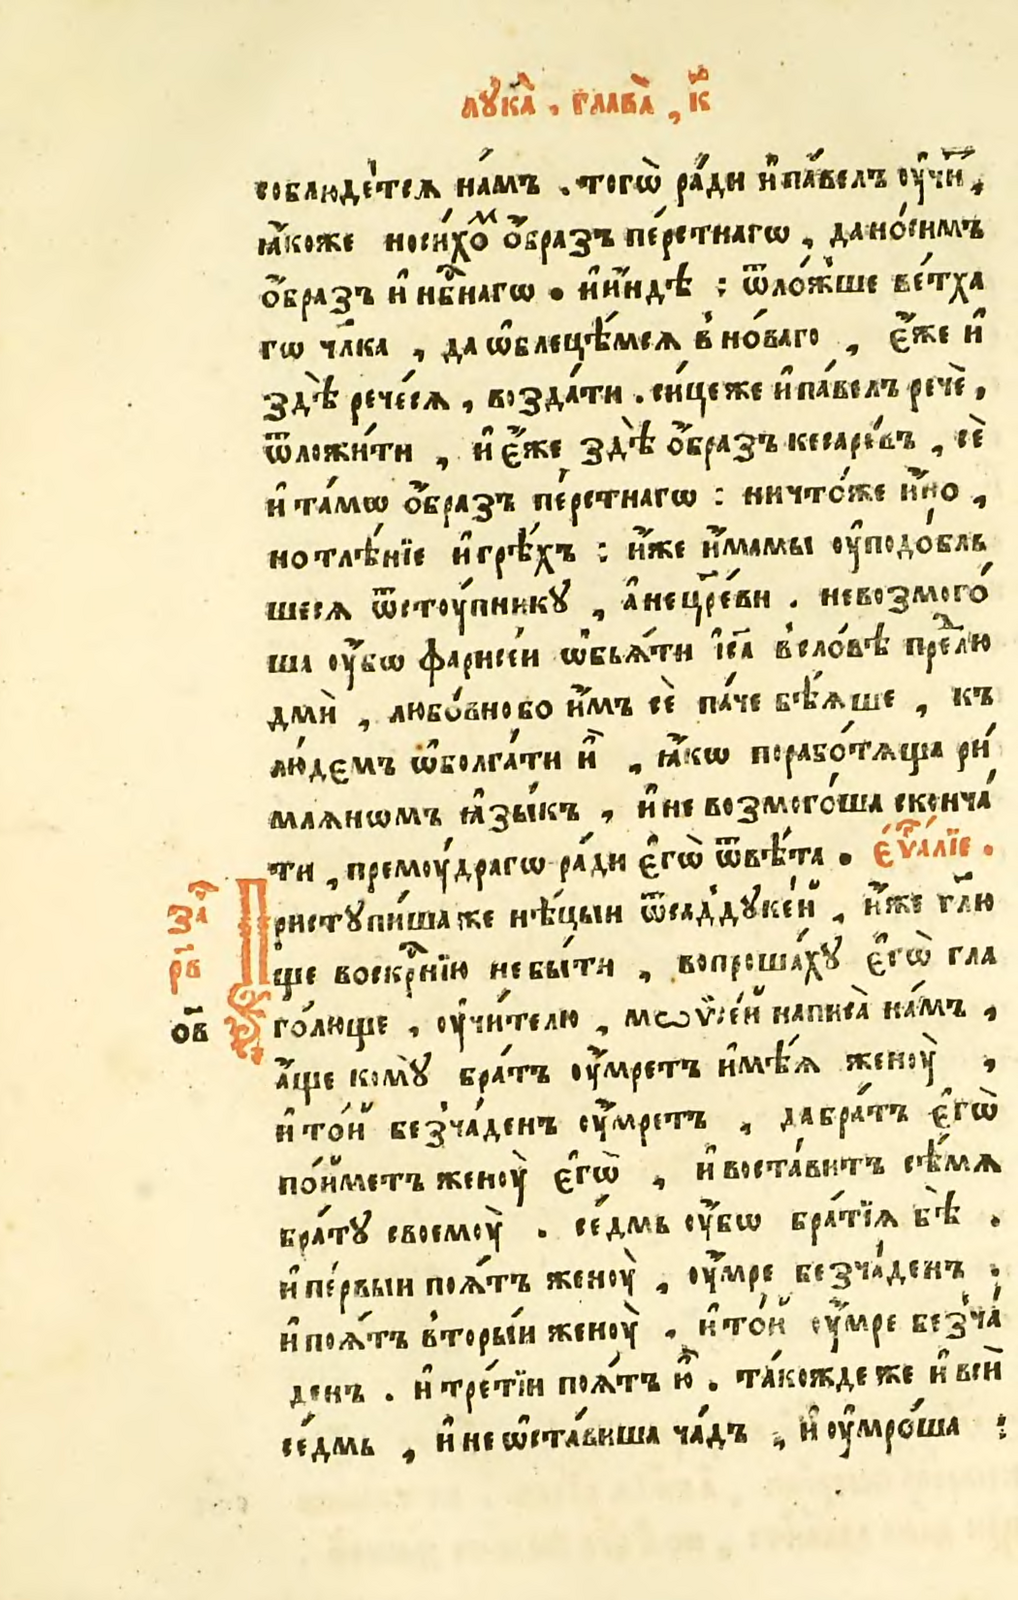 лꙋка̀ . глава̀ , к҃
соблюде́тсѧ на́мъ . тогѡ̀ ра́ди и҆ па́велъ ᲂу҆чи́т ,
ꙗ҆́коже носи́хоⷨ ѻ҆́бразъ пе́рстнагѡ , да но́симъ
ѻ҆́бразъ и҆ нбⷭ҇нагѡ . и҆ и҆́ндѣ : ѿло́жше ве́тха
гѡ чл҃ка , да ѡ҆блеце́мсѧ в̾ но́ваго , є҆́же и҆
здѣ̀ рече́сѧ , возда́ти . си́це же и҆ па́велъ речѐ ,
ѿложи́ти , и҆ є҆́же здѣ̀ ѻ҆́бразъ кеса́ревъ , сѐ
и҆ та́мѡ ѻ҆́бразъ пе́рстнагѡ : ничто́же и҆́но ,
но тлѣ́нїе и҆ грѣ́хъ : и҆́же и҆́мамы ᲂу҆подо́бль
шесѧ ѿстоу́пникꙋ , а҆ не цр҃е́ви . не возмого́
ша ᲂу҆́бѡ фарисе́и ѡ҆бьѧ́ти і҆с҃а в̾ сло́вѣ преⷣ лю
дмѝ , любо́вно бо и҆́мъ сѐ па́че бѣ́ѧше , къ
лю́дємъ ѡ҆болга́ти и҆̀ , ꙗ҆́кѡ порабо́тѧща ри́
млѧнѡмъ ꙗ҆зы́къ , и҆ не возмого́ша сконча́
ти , премоу́драгѡ ра́ди є҆гѡ̀ ѿвѣ́та . є҆ѵⷢ҇а́лїе .
заⷱ҇ Пристꙋпи́ша же нѣ́цыи ѿ саддꙋке́й , и҆́же гл҃ю
р҃в ще воскрⷭ҇нїю не бы́ти , вопроша́хꙋ є҆гѡ̀ гла
ѻ҃в го́люще , ᲂу҆чи́телю , мѡѷсе́й написа̀ на́мъ ,
а҆́ще комꙋ̀ бра́тъ ᲂу҆́мретъ и҆мѣ́ѧ женоу̀ ,
и҆ то́й без̾ча́денъ ᲂу҆́мретъ , да бра́тъ є҆гѡ̀
по́йметъ женоу̀ є҆гѡ̀ , и҆ воста́витъ сѣ́мѧ
бра́тꙋ своемоу̀ . се́дмь ᲂу҆́бѡ бра́тїѧ бѣ̀ .
и҆ пе́рвыи поѧ́тъ женоу̀ , ᲂу҆́мре без̾ча́денъ .
и҆ поѧ́тъ в̾торы́и женоу̀ , и҆ то́й ᲂу҆́мре без̾ча́
денъ . и҆ тре́тїи поѧ́тъ ю҆̀ . та́кожде же и҆ всѝ
се́дмь , и҆ не ѡ҆ста́виша ча́дъ , и҆ ᲂу҆мро́ша :